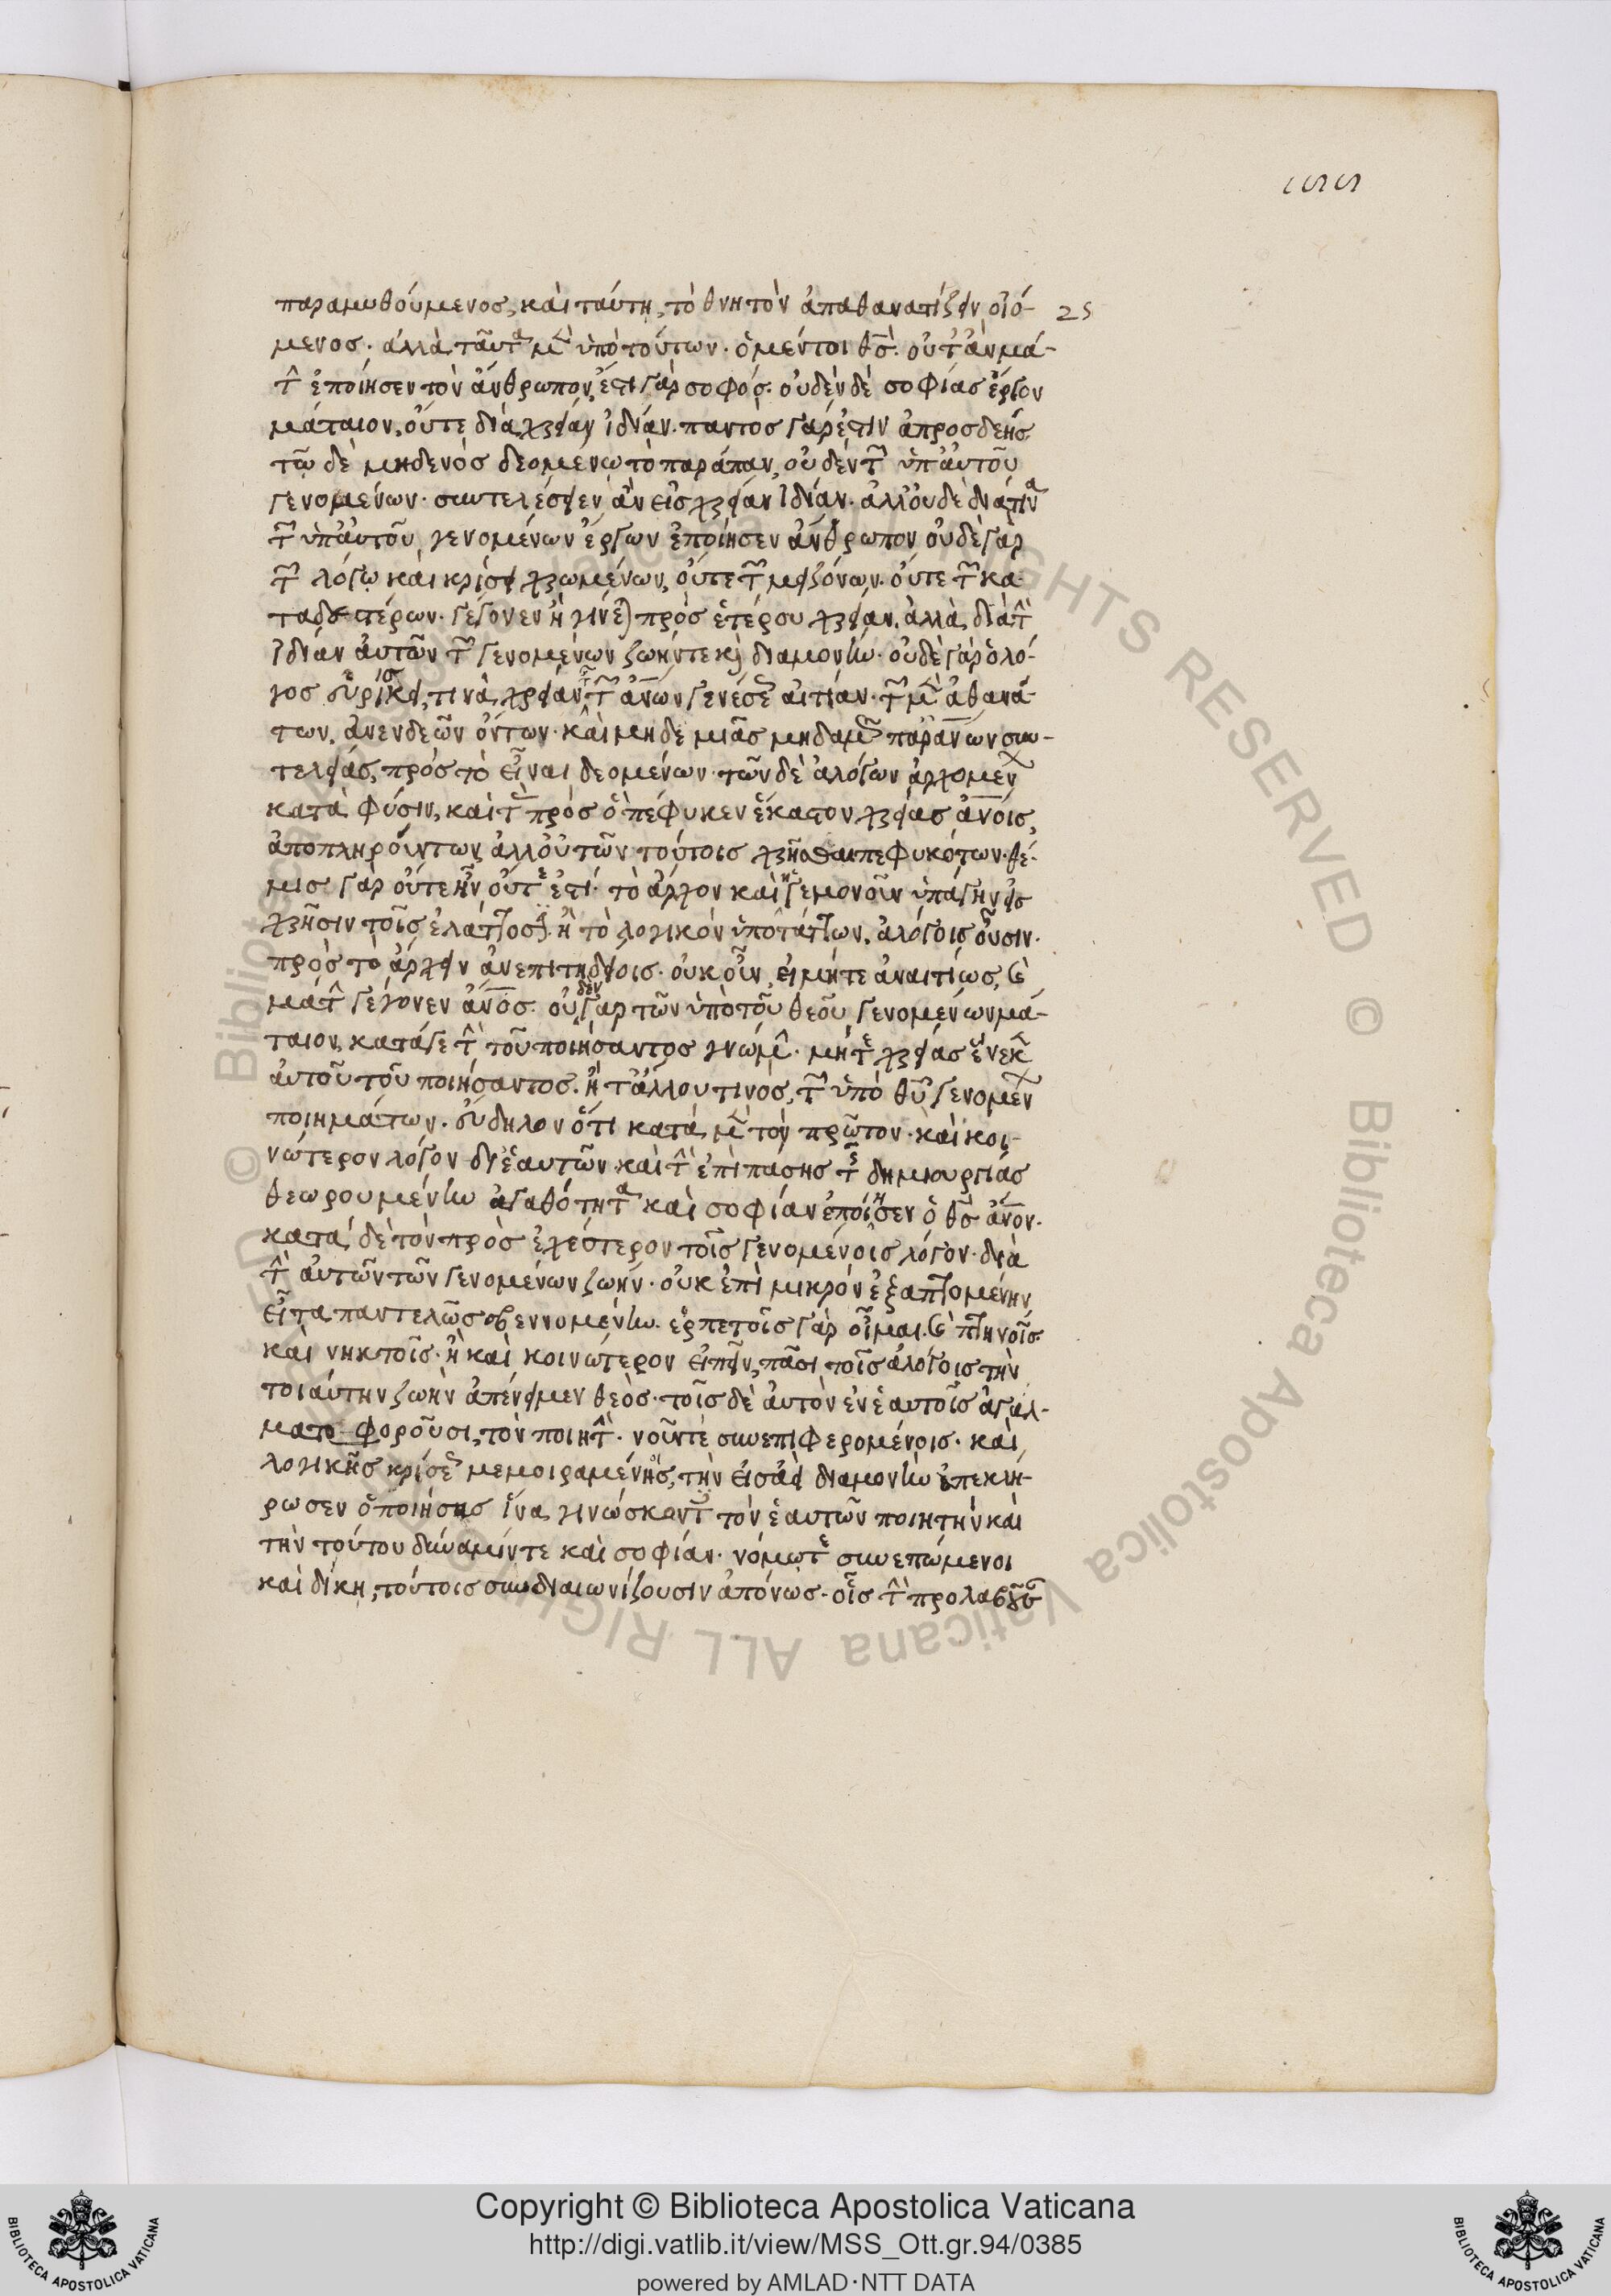 155
παραμυθούμενος, καὶ ταύτη, τὸ θνητὸν ἀπαθανατίζειν οἰό- 25
μενος. ἀλλὰ ταῦτα μὲν ὑπὸ τούτων. ὁ μέντοι θς. οὔτ' ἂν μά-
την ἐποίησεν τὸν ἄνθρωπον, ἔστι γὰρ σοφός. οὐδὲν δὲ σοφίας ἔργον
μάταιον, οὔτε διὰ χρείαν ἰδίαν. παντὸς γάρ ἐστιν ἀπροσδεής.
τῶ δὲ μηδενὸς δεομένω τὸ παράπαν, οὐδὲν τῶν ὑπ' αὐτοῦ
γενομένων. συντελέσειεν ἂν εἰς χρείαν ἰδίαν. ἀλλ' οὐδὲ διά τινα
τῶν ὑπ' αὐτοῦ γενομένων ἔργων ἐποίησεν ἄνθρωπον οὐδὲ γὰρ
τῶν λόγω καὶ κρίσει χρωμένων, οὔτε τῶν μειζόνων. οὔτε τῶν κα-
ταδεεστέρων. γέγονεν ἢ γίνεται πρὸς ἑτέρου χρείαν, ἀλλὰ, διὰ τὴν
ἰδίαν αὐτῶν τῶν γενομένων ζωήν τε καὶ διαμονήν. οὐδὲ γὰρ ὁ λό-
γος εὑρίσκει, τινὰ χρείαν τῆς τῶν ἀνων γενέσεως αἰτίαν. τῶν μὲν ἀθανά-
των, ἀνενδεῶν ὄντων. καὶ μηδεμιᾶς μηδαμῶς παρ' ἀνων συν-
τελείας, πρὸς τὸ εἶναι δεομένων. τῶν δὲ ἀλόγων ἀρχομένων
κατὰ φύσιν, καὶ τὰς πρὸς ὃ πέφυκεν ἕκαστον χρείας ἀνοις,
ἀποπληρούντων, ἀλλ' οὐ τῶν τούτοις χρῆσθαι πεφυκότων. θέ-
μις γὰρ οὔτε ἦν οὔτε ἐστί. τὸ ἄρχον καὶ ἡγεμονοῦν ὑπάγειν εἰς
χρῆσιν τοῖς ἐλάττοσιν. ἢ τὸ λογικὸν ὑποτάττειν, ἀλόγοις οὖσιν.
πρὸς τὸ ἄρχειν ἀνεπιτηδείοις. οὐκοῦν, εἰ μήτε ἀναιτίως, καὶ
μάτην γέγονεν ἀνος. οὐδὲν γὰρ τῶν ὑπὸ τοῦ θεοῦ γενομένων μά-
ταιον, κατά γε τὴν τοῦ ποιήσαντος γνώμην. μήτε χρείας ἕνεκεν
αὐτοῦ τοῦ ποιήσαντος. ἤτ' ἄλλου τινὸς, τῶν ὑπὸ θυ γενομένων
ποιημάτων. εὔδηλον ὅτι κατὰ μὲν τὸν πρῶτον. καὶ κοι-
νώτερον λόγον δι' ἑαυτῶν καὶ τὴν ἐπὶ πάσης τῆς δημιουργίας
θεωρουμένην ἀγαθότητα καὶ σοφίαν ἐποίησεν ὁ θς ἀνον.
κατὰ δὲ τὸν πρὸς ἐχέστερον τοῖς γενομένοις λόγον. διὰ
τὴν αὐτῶν τῶν γενομένων ζωήν. οὐκ ἐπὶ μικρὸν ἐξαπτομένην,
εἶτα παντελῶς σβεννυμένην. ἑρπετοῖς γὰρ οἶμαι. καὶ πτηνοῖς.
καὶ νηκτοῖς. ἢ καὶ κοινώτερον εἰπεῖν, πᾶσι τοῖς ἀλόγοις τὴν
τοιαύτην ζωὴν ἀπένειμεν θεός. τοῖς δὲ αὐτὸν ἐν ἑαυτοῖς ἀγαλ-
ματοφοροῦσι, τὸν ποιητήν. νοῦν τε συνεπιφερομένοις. καὶ
λογικῆς κρίσεως μεμοιραμένοις, τὴν εἰσαεὶ διαμονὴν ἀπεκλή-
ρωσεν ὁ ποιήσας ἵνα γινώσκοντες τὸν ἑαυτῶν ποιητὴν καὶ
τὴν τούτου δύναμίν τε καὶ σοφίαν. νόμω τε συνεπόμενοι
καὶ δίκη, τούτοις συνδιαιωνίζουσιν ἀπόνως. οἷς τὴν προλαβοῦσαν
© Biblioteca Apostolica Vaticana ALL RIGHTS RESERVED
Copyright © Biblioteca Apostolica Vaticana
http://digi.vatlib.it/view/MSS_Ott.gr.94/0385
powered by AMLAD·NTT DATA
BIBLIOTECA APOSTOLICA VATICANA
BIBLIOTECA APOSTOLICA VATICANA